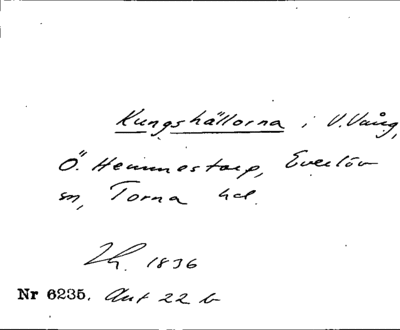 Kungshällorna i V. Vång,
Ö. Hemmestorp, Everlöv
sn, Torna hd.
Lh. 1836
Nr 6235. Ant 22 b